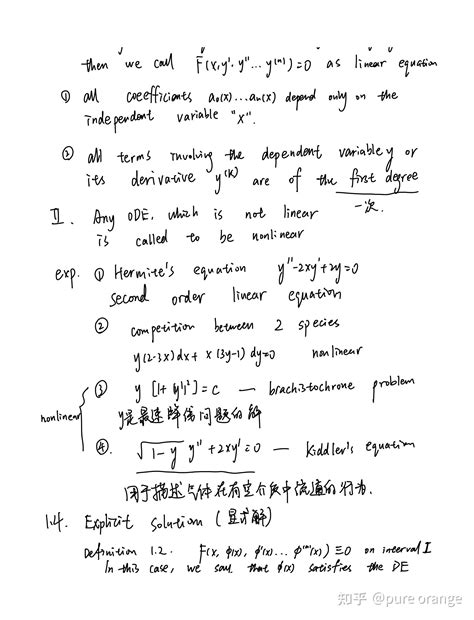 then "we call F(x,y',y''...y⁽ⁿ⁾)=0 as linear equation
① all coefficients a₀(x)...aₙ(x) depend only on the
independent variable "x".
② all terms involving the dependent variable y or
its derivative y⁽ᵏ⁾ are of the first degree
一次.
II. Any ODE, which is not linear
is called to be nonlinear
exp. ① Hermite's equation y''-2xy'+2y=0
second order linear equation
② competition between 2 species
y(2-3x)dx + x(3y-1)dy=0 nonlinear
nonlinear ③ y[1+(y')²]=c — brachistochrone problem
y是最速降线问题的解
④ √1-y y''+2xy'=0 — Kiddler's equation
用于描述气体在有空介质中流通的行为.
1.4. Explicit solution (显式解)
Definition 1.2. F(x, φ(x), φ'(x)... φ⁽ⁿ⁾(x)) ≡0 on interval I
In this case, we say that φ(x) satisfies the DE
知乎 @pure orange